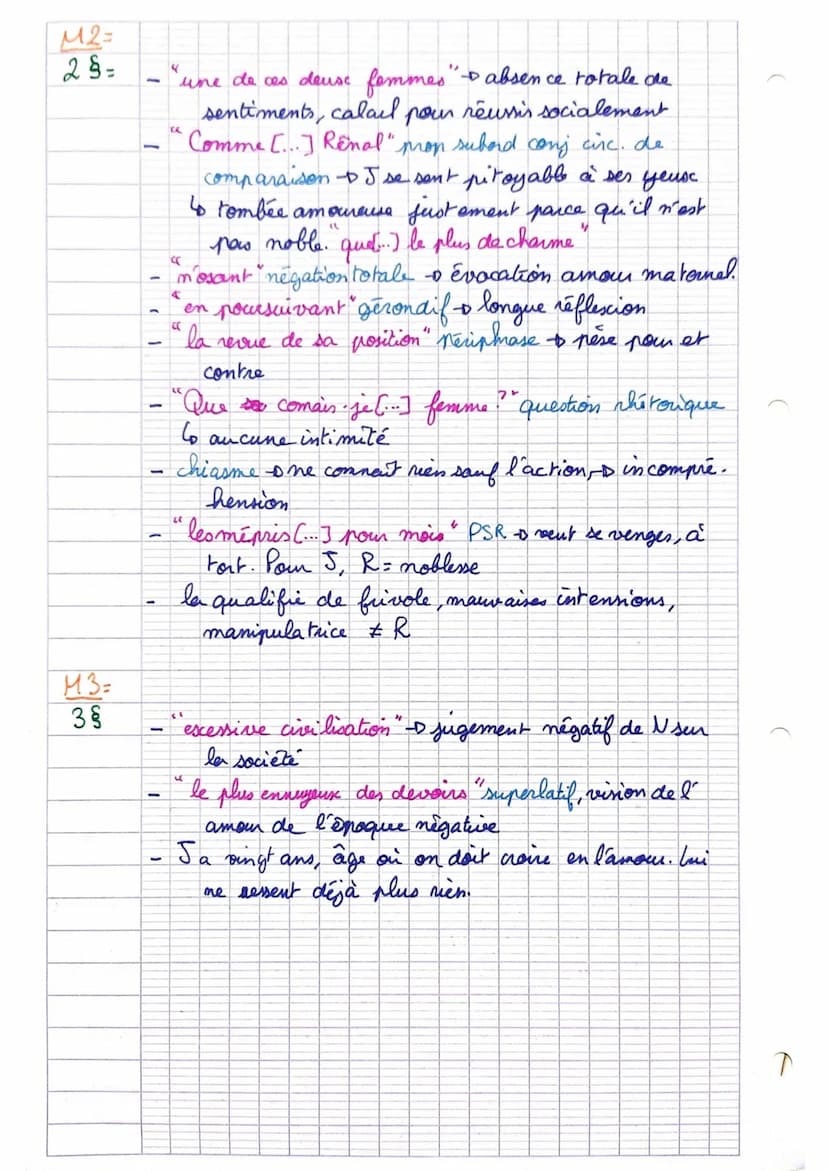 M2=
2 §=
- "une de ces deux femmes" → absence totale de
sentiments, calcul pour réussir socialement
- "Comme [...] Rênal" prop subord conj circ. de
comparaison → J se sent pitoyable à ses yeux
↳ tombée amoureuse justement parce qu'il n'est
pas noble. "que[...] le plus de charme"
- "n'osant" négation totale → évocation amour maternel.
- "en poursuivant" gérondif → longue réflexion
- "la revue de sa position" périphrase → pèse pour et
contre
- "Que connais-je [...] femme ?" question rhétorique
↳ aucune intimité
- chiasme → ne connait rien sauf l'action, → incompré-
hension
- "les mépris [...] pour mois" PSR → veut se venger, à
tort. Pour J, R = noblesse
- la qualifie de frivole, mauvaises intensions,
manipulatrice ≠ R
M3=
3§
- "excessive civilisation" → jugement négatif de N sur
la société
- "le plus ennuyeux des devoirs" superlatif, vision de l'
amour de l'époque négative
- J a vingt ans, âge où on doit croire en l'amour. Lui
ne ressent déjà plus rien.